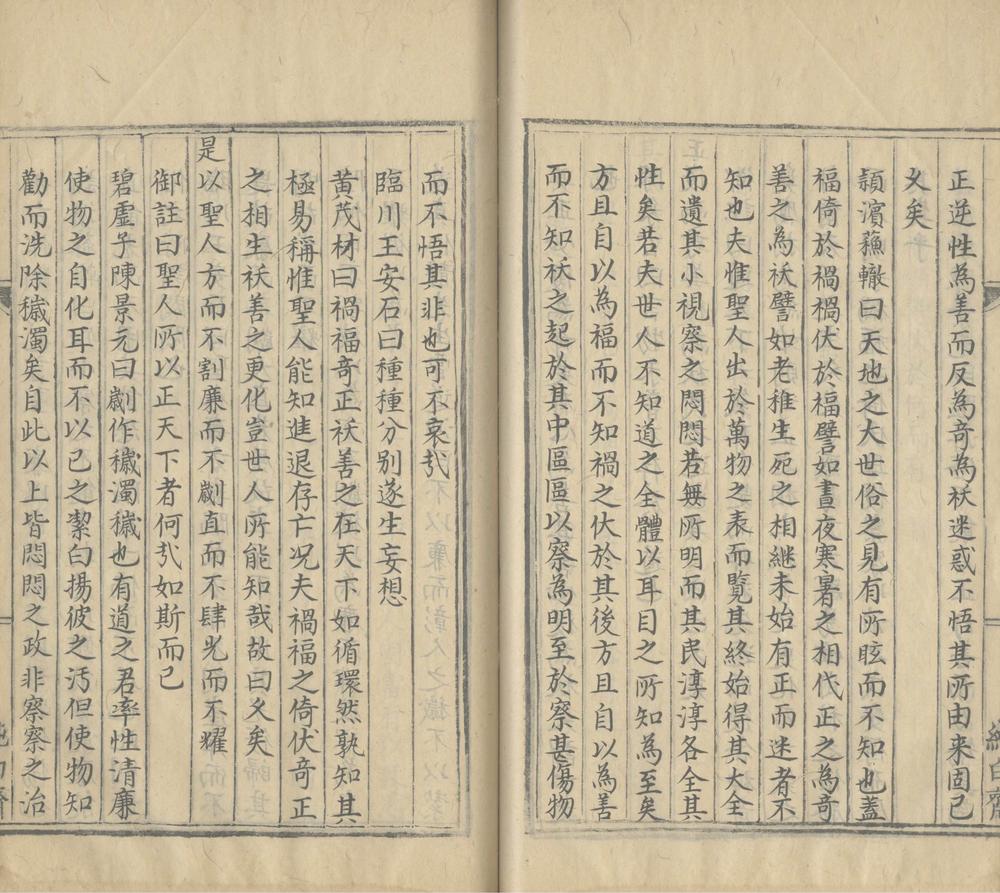 正逆性為善而反為竒為袄迷惑不悟其所由来固已
乆矣
頴濱蘓轍曰天地之大世俗之見有所眩而不知也蓋
福倚於禍禍伏於福譬如晝夜寒暑之相代正之為竒
善之為袄譬如老稚生死之相継未始有正而迷者不
知也夫惟聖人出於萬物之表而覽其終始得其大全
而遺其小視察之悶悶若無所明而其民淳淳各全其
性矣若夫世人不知道之全體以耳目之所知為至矣
方且自以為福而不知禍之伏於其後方且自以為善
而不知袄之起於其中區區以察為明至於察甚傷物
而不悟其非也可不哀㢤
臨川王安石曰種種分别遂生妄想
黄茂材曰禍福竒正袄善之在天下如循環然孰知其
極易稱惟聖人能知進退存亡况夫禍福之倚伏竒正
之相生袄善之更化豈世人所能知哉故曰乆矣
是以聖人方而不割廉而不劌直而不肆光而不耀
御註曰聖人所以正天下者何㢤如斯而已
碧虚子陳景元曰劌作穢濁穢也有道之君率性清廉
使物之自化耳而不以已之㓗白揚彼之汚但使物知
勸而洗除穢濁矣自此以上皆悶悶之政非察察之治